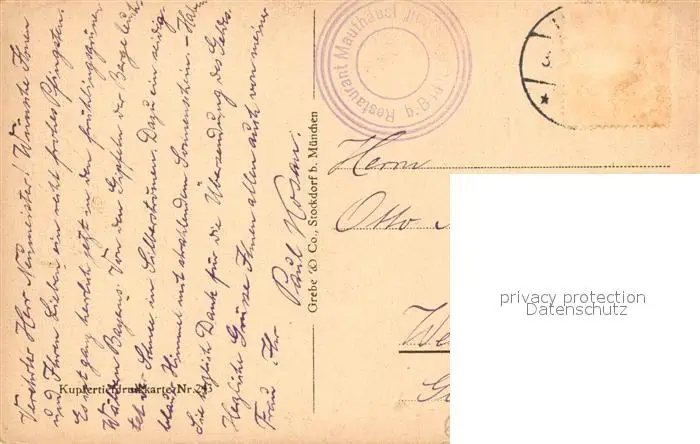 Verehrter Herr Neumeister! Wünsche Ihnen
und Ihren Lieben ein recht frohes Pfingsten.
Es ist ganz herrlich jetzt in den frühlingsgrünen
Wäldern Bayerns. Von den Gipfeln der Berge leuch-
tet der Schnee in Silberströmen. Dazu ein seidig-
blauer Himmel mit strahlendem Sonnenschein
herzlich Dank für die Übersendung des Geldes.
Herzliche Grüsse Ihnen allen auch von meiner
Frau Ihr
Paul
Kupfertiefdruckkarte Nr.
Grebe & Co., Stockdorf b. München
Restaurant Mauthäusl
Herrn
Otto
We
privacy protection
Datenschutz